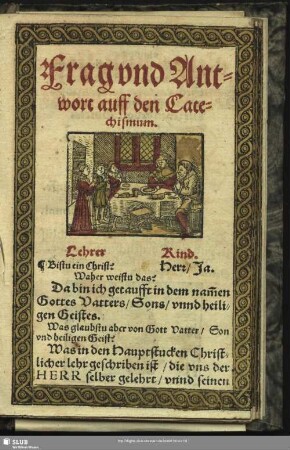 Frag vnd Ant=
wort auff den Cate=
chismum.
Lehrer Kind.
¶ Bistu ein Christ? Herr/ Ja.
Waher weistu das?
Da bin ich getaufft in dem nam̄en
Gottes Vatters/ Sons/ vnnd heili=
gen Geistes.
Was glaubstu aber von Gott Vatter/ Son
vnd heiligen Geist?
Was in den Hauptstucken Christ=
licher lehr geschriben ist/ die vns der
HERR selber gelehrt/ vnnd seinen
SLUB